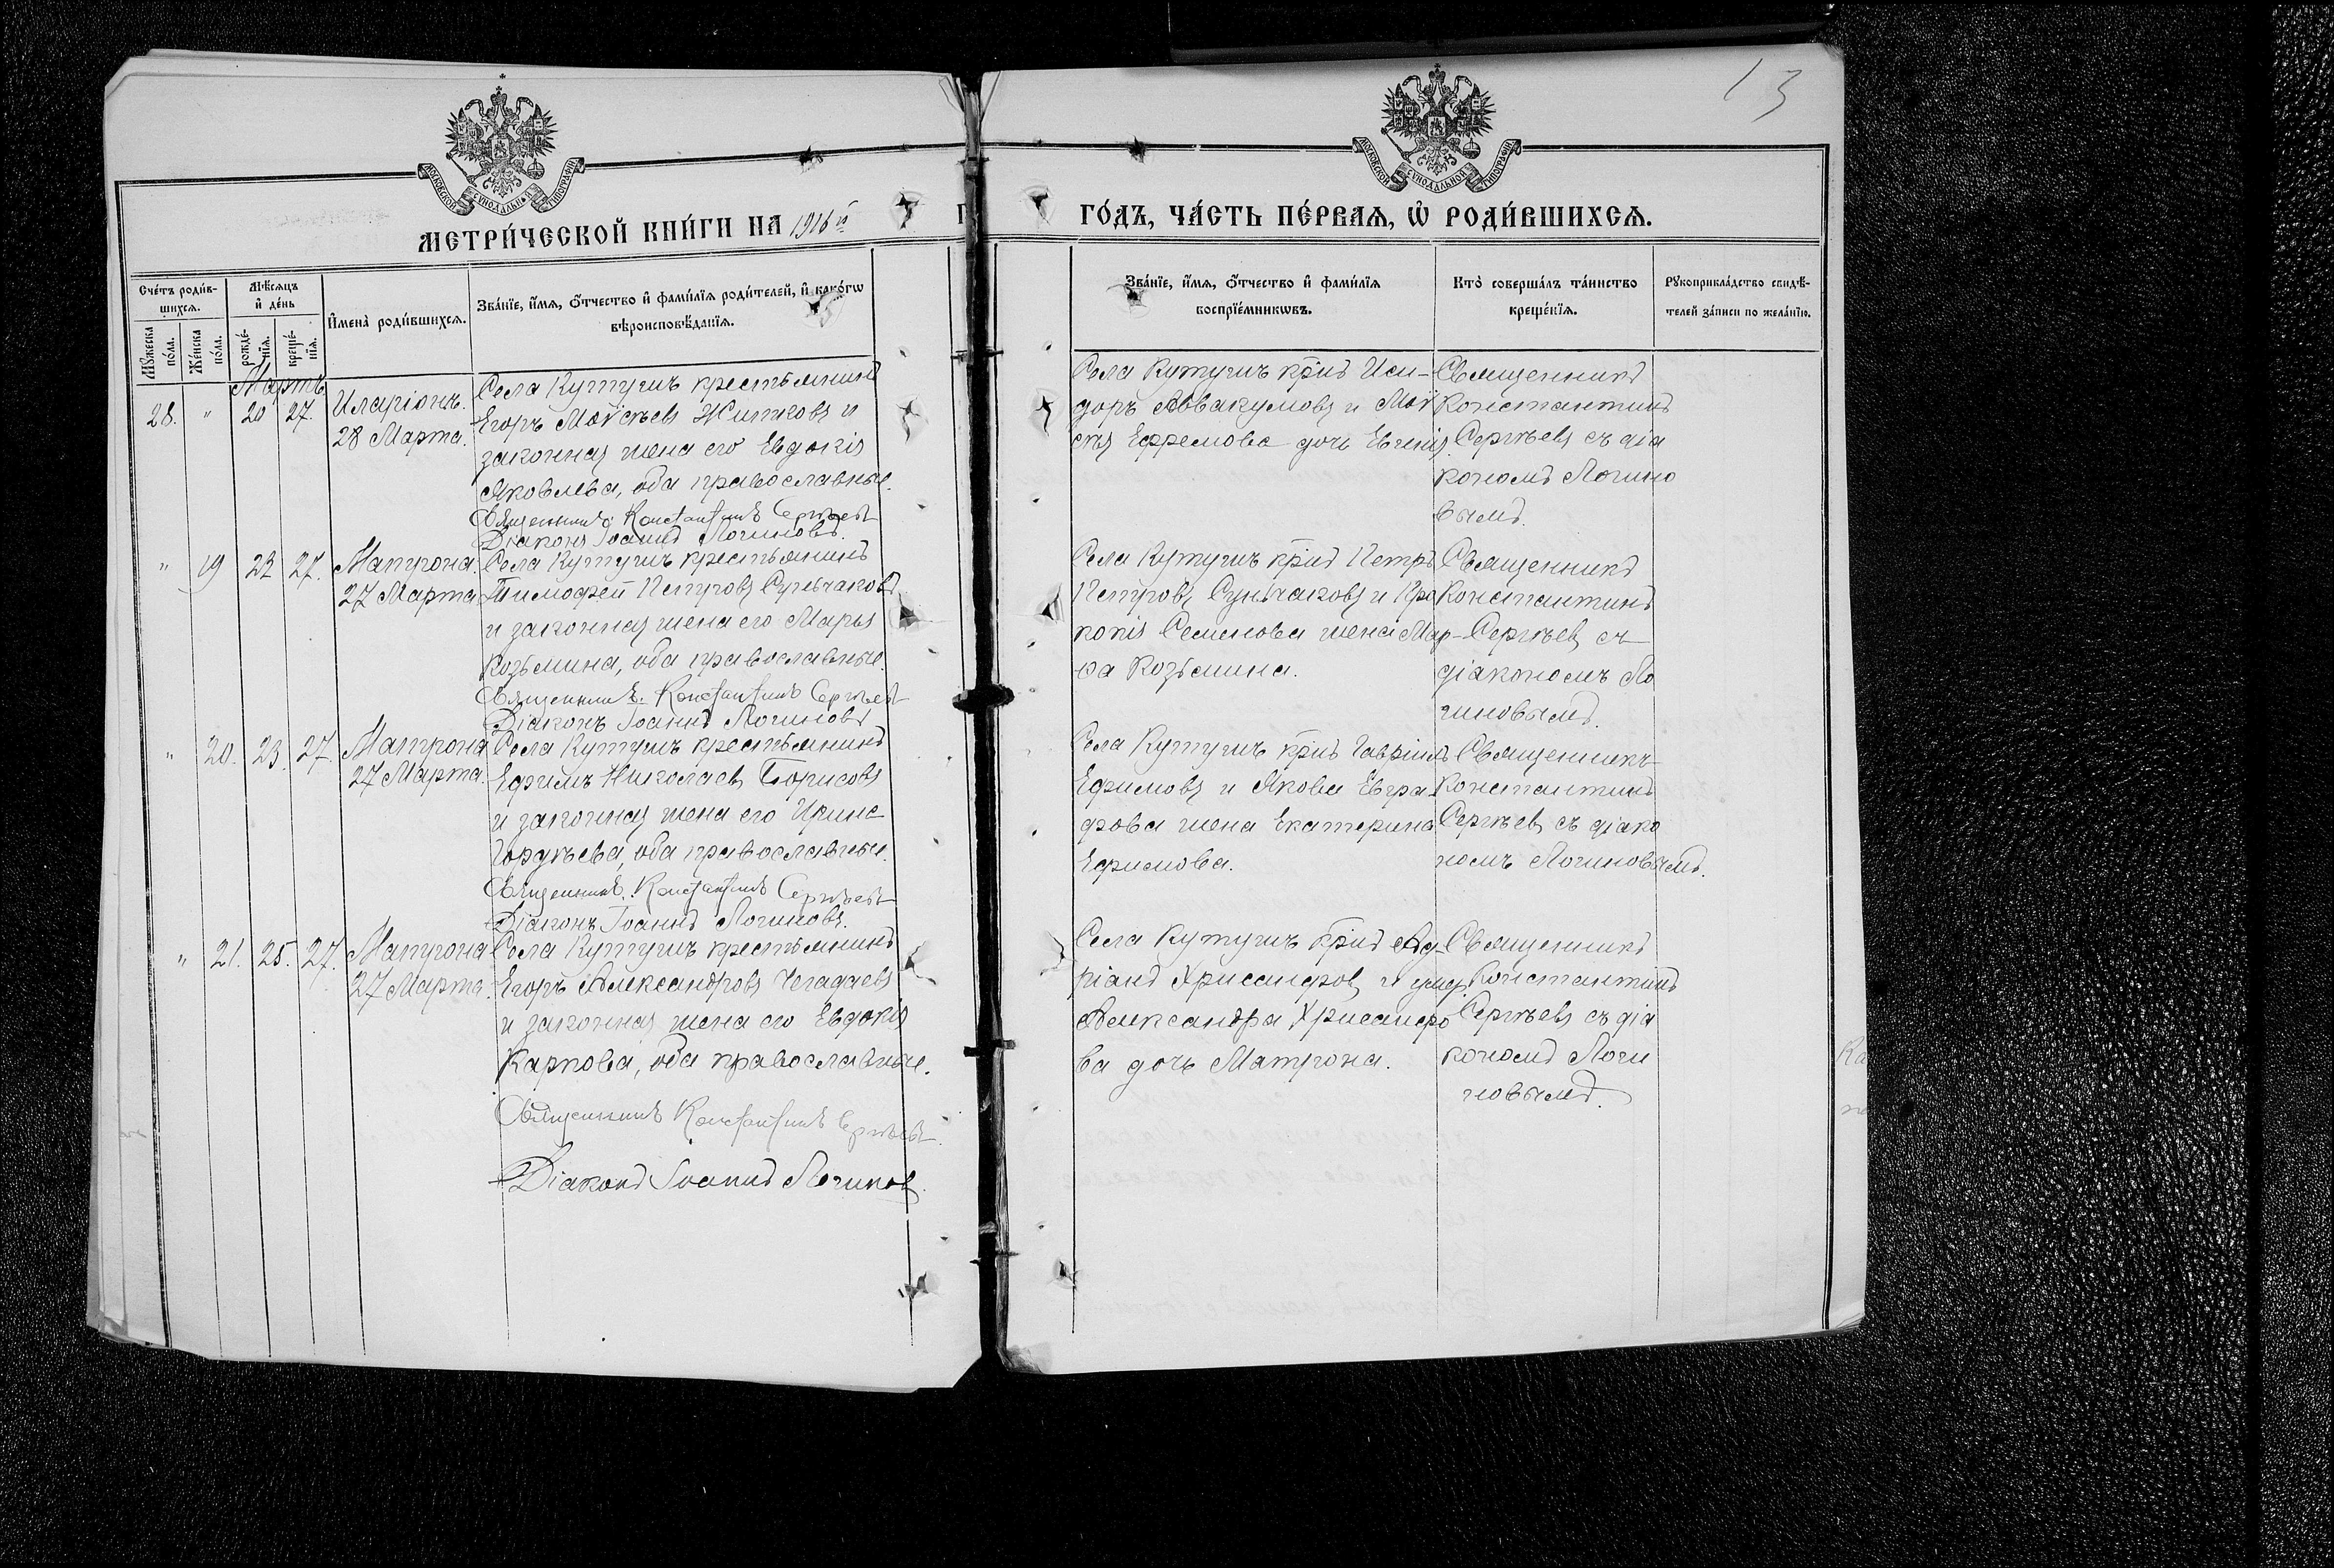 13
МОСКОВСКОЙ СѴНОДАЛЬНОЙ ТИПОГРАФІИ
МОСКОВСКОЙ СѴНОДАЛЬНОЙ ТИПОГРАФІИ
МЕТРИ́ЧЕСКОЙ КНИ́ГИ НА 1916 й
ГО́ДЪ, ЧА́СТЬ ПЕ́РВАѦ, Ѡ҆ РОДИ́ВШИХСѦ.
Сче́тъ роди́в-
шихсѧ.
Мꙋ́жеска по́ла.
Же́нска по́ла.
Мѣ́сѧцъ и҆ де́нь
рожде́-нїѧ.
креще́-нїѧ.
И҆мена̀ роди́вшихсѧ.
Зва́нїе, и҆́мѧ, ѻ҆́тчество и҆ фами́лїѧ роди́телей, и҆ како́гѡ
вѣроисповѣ́данїѧ.
Зва́нїе, и҆́мѧ, ѻ҆́тчество и҆ фами́лїѧ
воспрїе́мникѡвъ.
Кто̀ соверша́лъ та́инство
креще́нїѧ.
Рꙋкоприкла́дство свидѣ́-
телей за́писи по жела́нїю.
Мартъ
28. " 20 27. Иларіонъ.
28 Марта.
Села Кутушъ крестьянинъ
Егоръ Моѵсѣевъ Житковъ и
законная жена его Евдокія
Яковлева, оба православные.
Священникъ Константинъ Сергѣевъ
Діаконъ Іоаннъ Логиновъ.
Села Кутушъ кр̃нъ Иси-
доръ Аввакумовъ и Моѵ
сея Ефремова дочь Евгенія.
Священникъ
Константинъ
Сергѣевъ съ діа
кономъ Логино
вымъ.
" 19 23 27. Матрона.
27 Марта
Села Кутушъ крестьянинъ
Тимофей Петровъ Сунчаковъ
и законная жена его Марья
Козьмина, оба православные.
Священникъ Константинъ Сергѣевъ
Діаконъ Іоаннъ Логиновъ
Села Кутушъ кр̃нъ Петръ
Петровъ Сунчаковъ и Про
копія Семенова жена Мар-
ѳа Козьмина.
Священникъ
Константинъ
Сергѣевъ съ
діакономъ Ло
гиновымъ.
" 20. 23. 27. Матрона
27 Марта.
Села Кутушъ крестьянинъ
Ефимъ Николаевъ Борисовъ
и законная жена его Ирина
Гордѣева, оба православные.
Священникъ Константинъ Сергѣевъ
Діаконъ Іоаннъ Логиновъ.
Села Кутушъ кр̃нъ Гавріилъ
Ефимовъ и Якова Евгра
фова жена Екатерина
Ефимова.
Священникъ
Константинъ
Сергѣевъ съ діако
номъ Логиновымъ.
" 21. 25. 27. Матрона
27 Марта.
Села Кутушъ крестьянинъ
Егоръ Александровъ Чегадаевъ
и законная жена его Евдокія
Карпова, оба православные.
Священникъ Константинъ Сергѣевъ
Діаконъ Іоаннъ Логиновъ.
Села Кутушъ кр̃нъ Ад-
ріанъ Хрисанфовъ и
Александра Хрисанфо
ва дочь Матрона.
Священникъ
Константинъ
Сергѣевъ съ діа
кономъ Логи
новымъ.